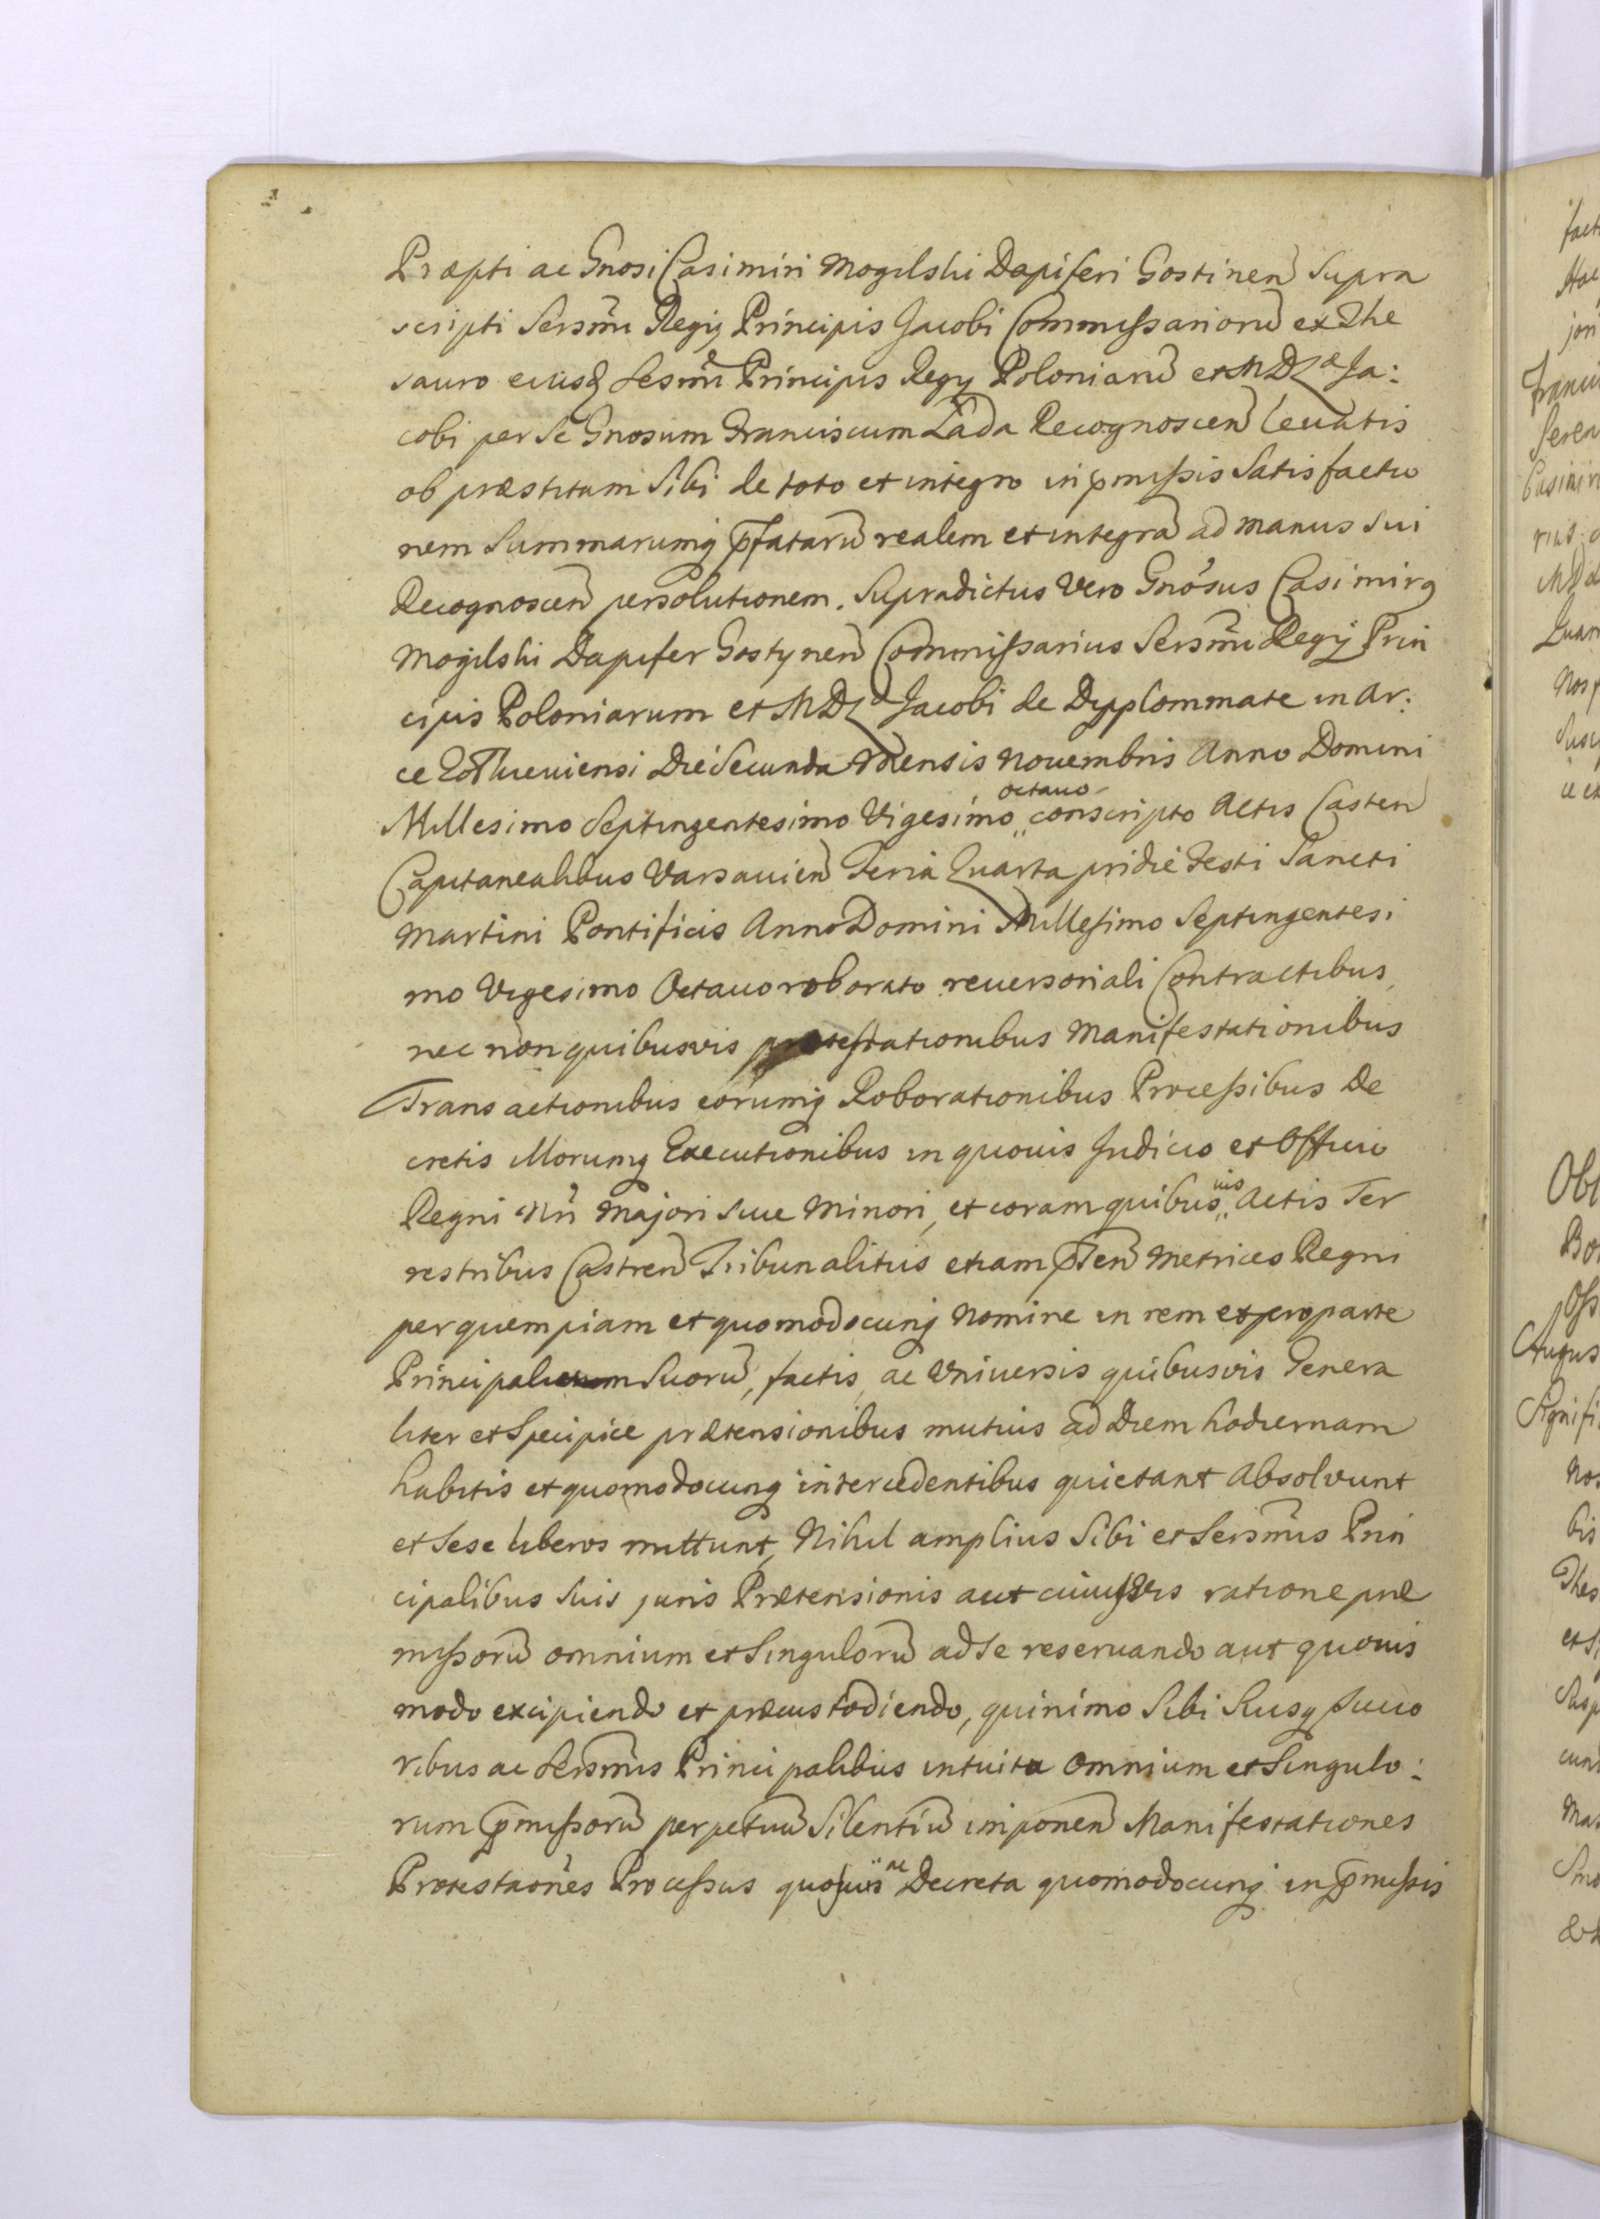 Præpti ac Gnosi Casimiri Mogilski Dapiferi Gostinen Supra
scripti Sersmi Regij Principis Jacobi Commissariorū ex The
sauro eiusd Sesmi Principis Regij Poloniarū et M D L æ Ja:
cobi per Se Gnosum Franciscum Łada Recognoscen levatis
ob præstitam Sibi de toto et integro in pmissis Satisfactio
nem Summarumq pfatarū realem et integrā ad manus Sui
Recognoscen persolutionem. Supradictus Vero Gnosus Casimirg
Mogilski Dapifer Gostynen Commissarius Sersmi Regij Prin
cipis Poloniarum et M D L æ Jacobi de Dyplommate in Ar:
ce Die Secunda Mensis Novembris Anno Domini
Millesimo Septingentesimo Vigesimo octavo conscripto Actis Castren
Capitanealibus Varsavien Feria Quarta pridie Festi Sancti
Martini Pontificis Anno Domini Millesimo Septingentesi
mo Vigesimo Octavo roborato reversoriali Contractibus,
nec non quibusvis protestationibus Manifestationibus
Transactionibus eorumq Roborationibus Processibus De
cretis Illorumq Executionibus in quovis Judicio et Officio
Regni Nri Majori Sive Minori, et coram quibusvis Actis Ter
restribus Castren Tribunalitiis etiam pten Metrices Regni
per quempiam et quomodocunq Nomine in rem et pro parte
Principalium Suorū, factis, ac Universis quibusvis Genera
liter et Specifice prætensionibus mutuis ad Diem hodiernam
habitis et quomodocunq intercedentibus quietant Absolvunt
et Sese liberos mittunt, Nihil amplius Sibi et Sersmis Prin
cipalibus Suis juris Prætensionis aut cuiusvis ratione præ
missorū omnium et Singulorū ad Se reservando aut quovis
modo excipiendo et præcustodiendo, quinimo Sibi Suisq Succo
ribus ac Sersmis Principalibus intuitu Omnium et Singulo:
rum pmissorū perpetuū Silentiū imponen Manifestationes
Protestaones Processus quosvis ac Decreta quomodocunq in pmissis